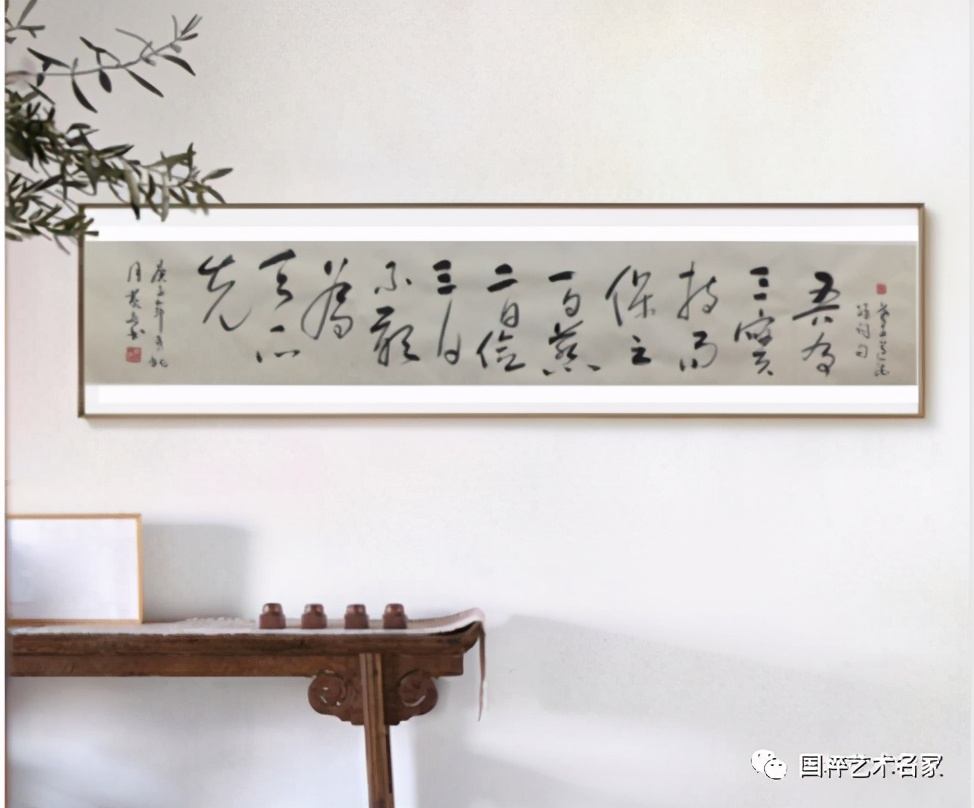 老子道德
吾有
三寶
持而
保之
一曰慈
二曰儉
三曰
不敢
為
天下
先
庚子年
国粹艺术名家